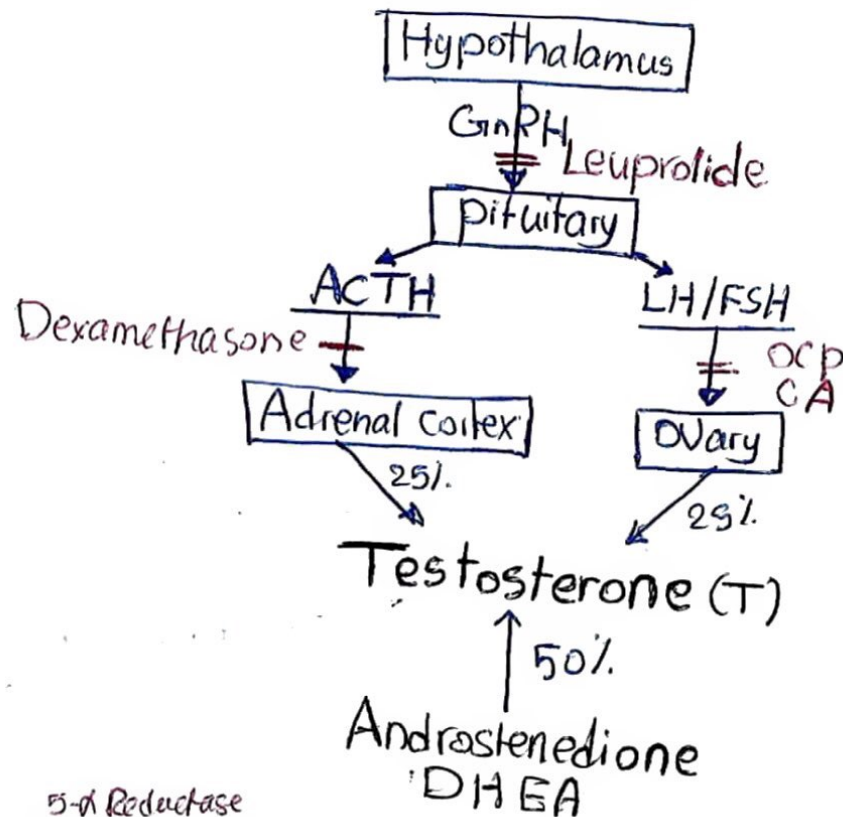 Hypothalamus
GnRH
Leuprolide
Pituitary
ACTH
LH/FSH
Dexamethasone
OCP
CA
Adrenal Cortex
Ovary
25%
25%
Testosterone (T)
50%
Androstenedione
DHEA
5-α Reductase